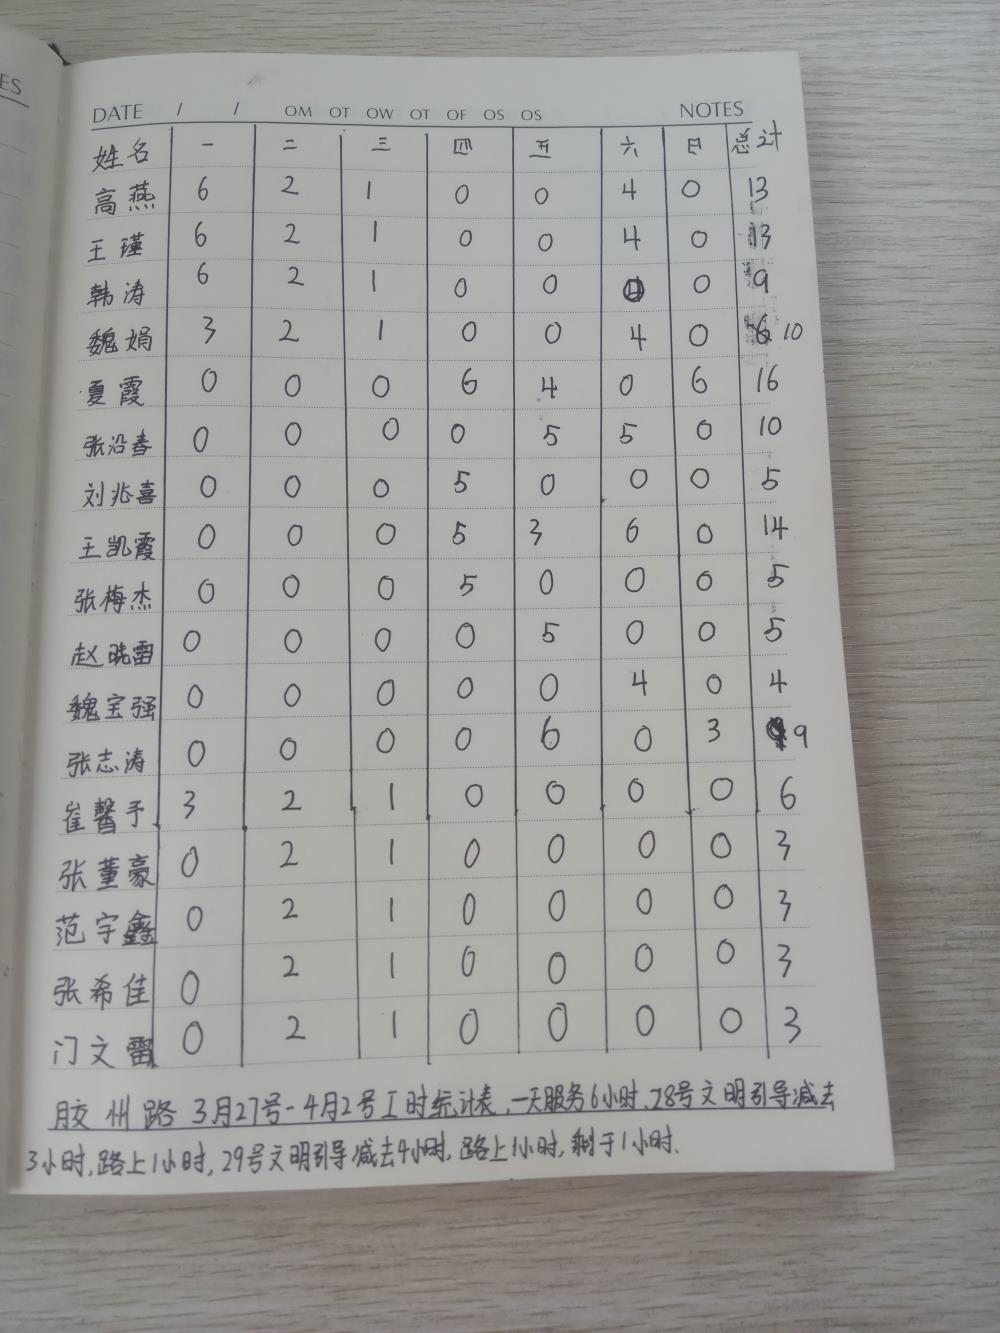 ES
DATE / / OM OT OW OT OF OS OS NOTES
姓名 一 二 三 四 五 六 日 总计
高燕 6 2 1 0 0 4 0 13
王瑾 6 2 1 0 0 4 0 13
韩涛 6 2 1 0 0 0 9
魏娟 3 2 1 0 0 4 0 6 10
夏霞 0 0 0 6 4 0 6 16
张沿春 0 0 0 0 5 5 0 10
刘兆喜 0 0 0 5 0 0 0 5
王凯霞 0 0 0 5 3 6 0 14
张梅杰 0 0 0 5 0 0 0 5
赵晓雷 0 0 0 0 5 0 0 5
魏宝强 0 0 0 0 0 4 0 4
张志涛 0 0 0 0 6 0 3 9
崔馨予 3 2 1 0 0 0 0 6
张董豪 0 2 1 0 0 0 0 3
范宇鑫 0 2 1 0 0 0 0 3
张希佳 0 2 1 0 0 0 0 3
门文雷 0 2 1 0 0 0 0 3
胶州路3月27号-4月2号工时统计表,一天服务6小时,28号文明引导减去
3小时,路上1小时,29号文明引导减去4小时,路上1小时,剩于1小时.